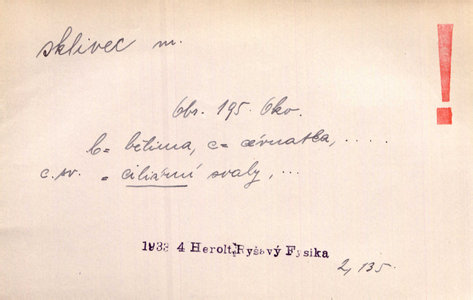 sklivec m.
!
Obr. 195. Oko.
b = bělima, c = cévnatka, .....
c. sv. = ciliární svaly, ...
1933 4 Herolt, Ryšavý Fysika
2, 135.